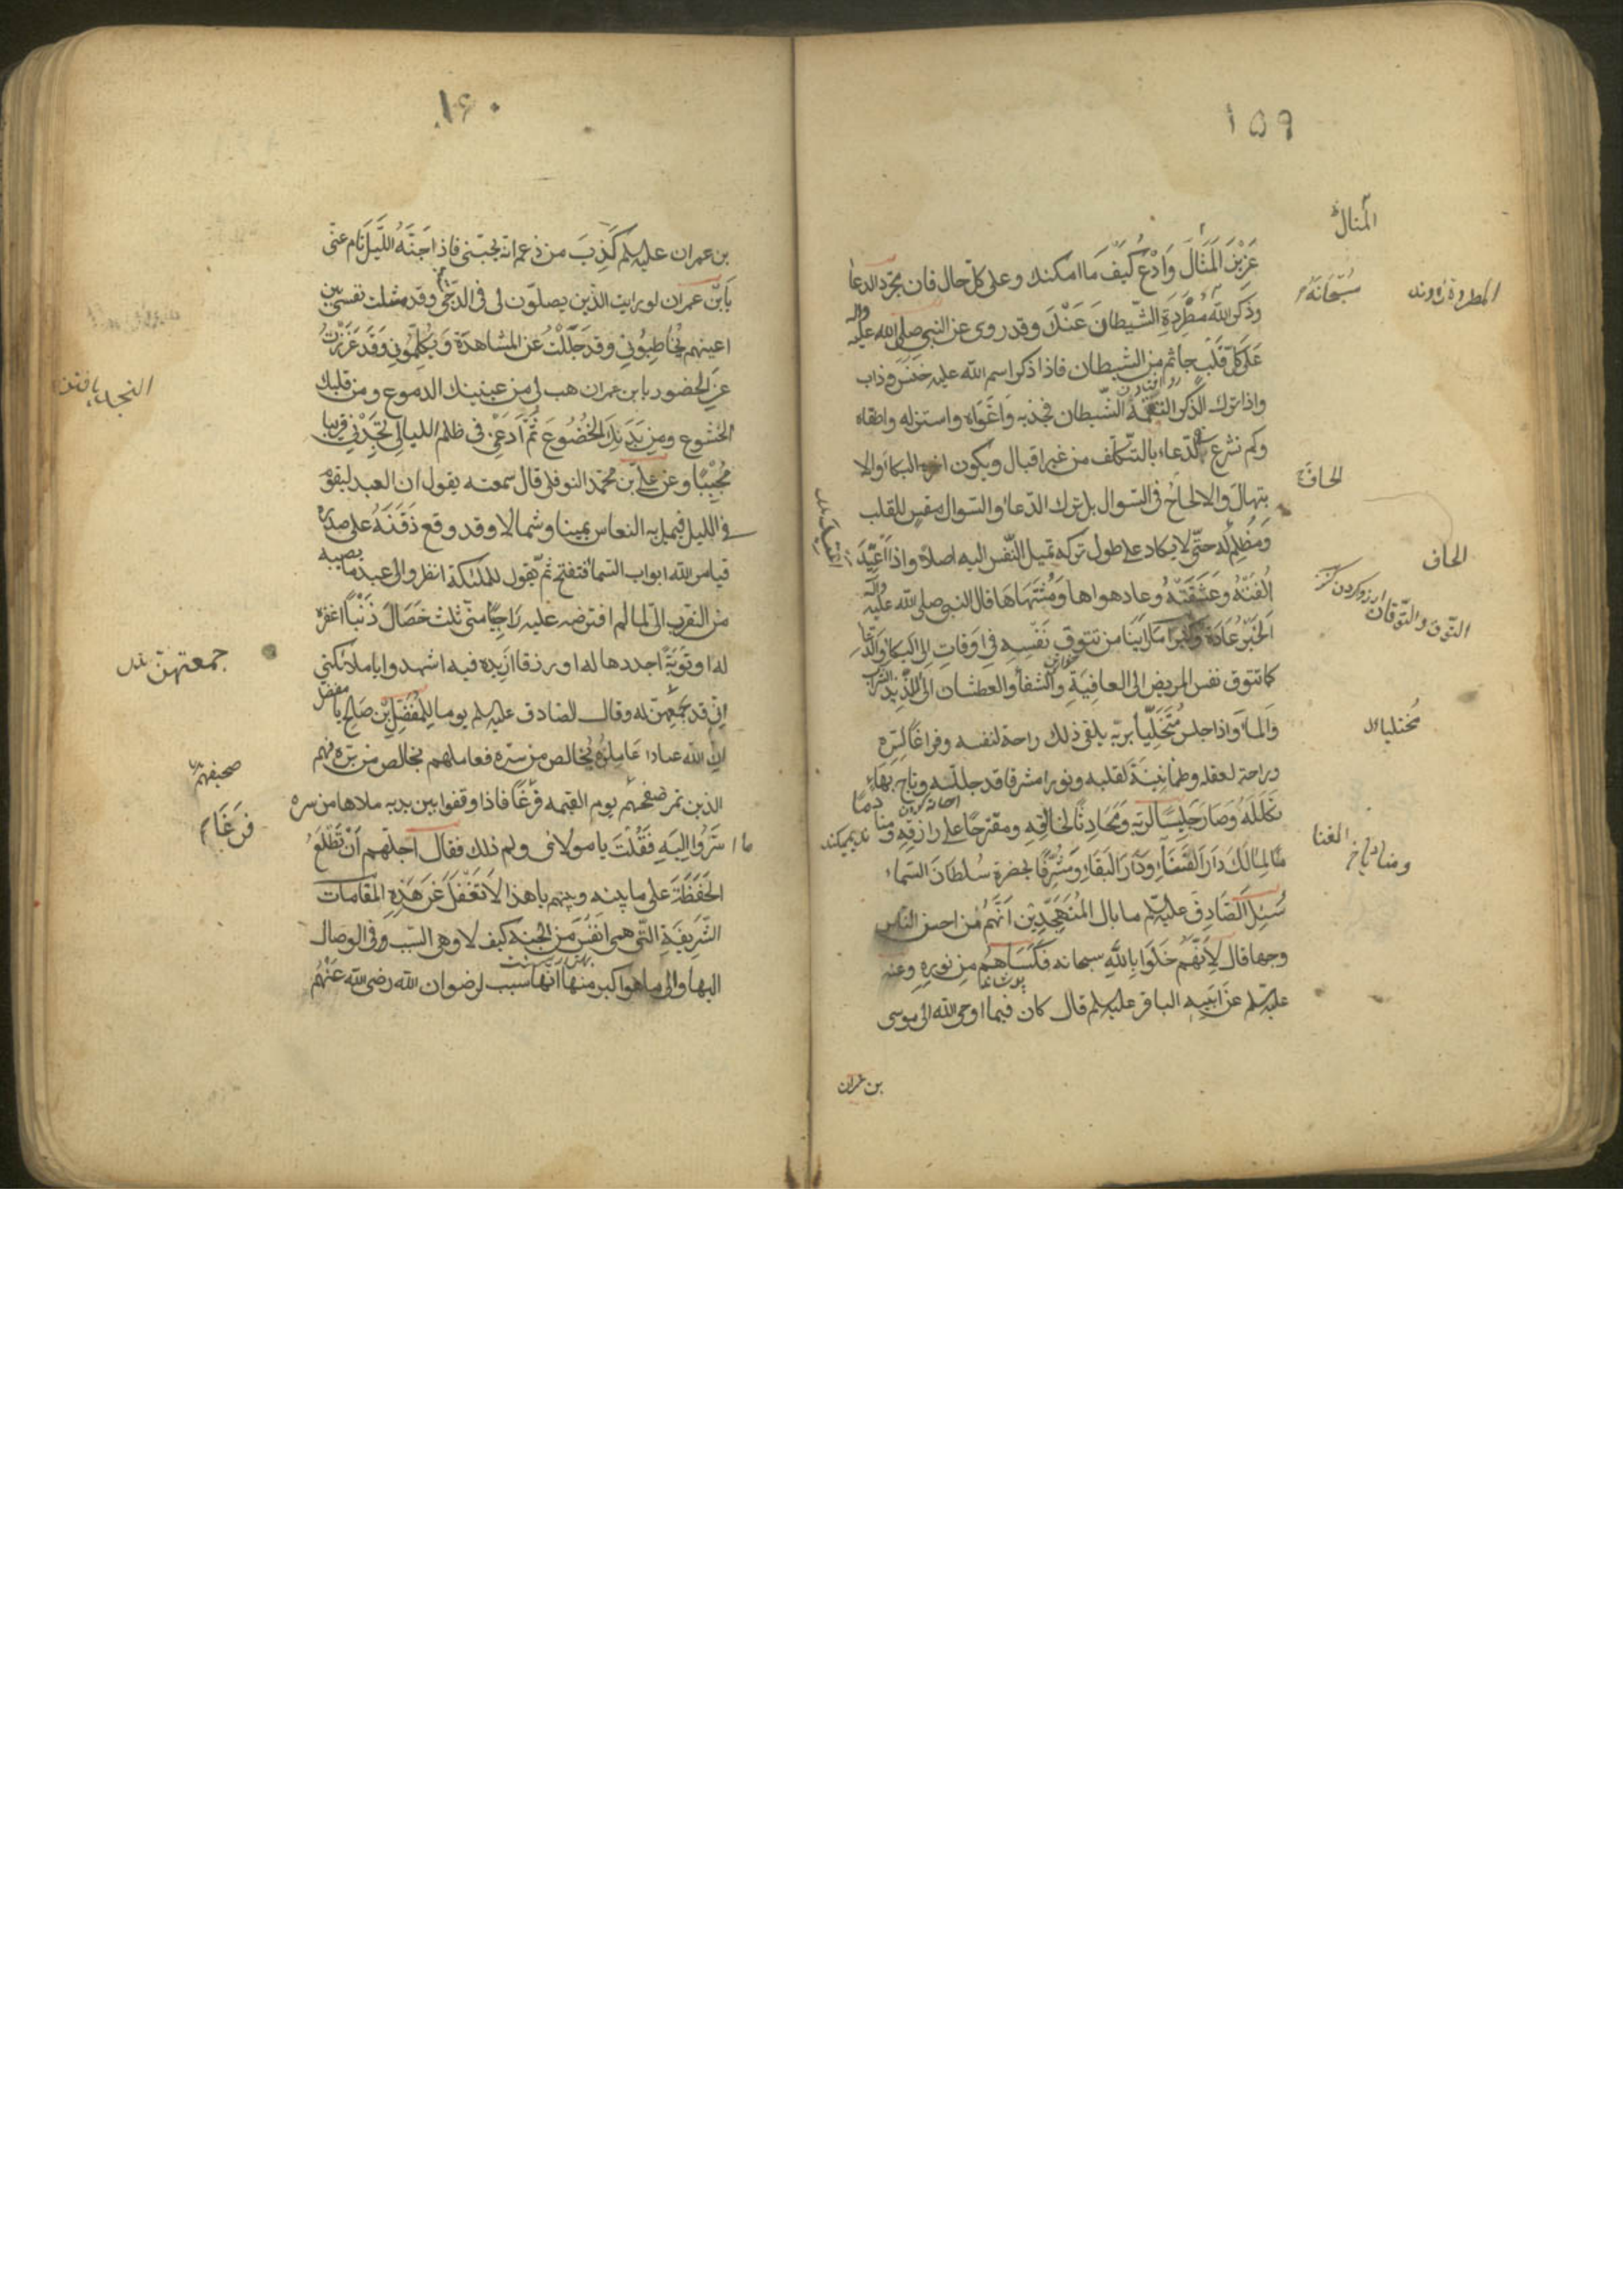 ١٥٩
عَزِيْزَ الْمَنَالِ وَادْعُ كَيْفَ مَا امكنك و على كلّ حال فان مجرّد الدعا
وذكر اللّه مَطْرَدَةِ الشّيطان عَنْكَ وقد روى عن النبى صلى اللّه عليه واله
عَلَى كلّ قَلْبٍ جاثم من الشيطان فاذا ذكر اسم اللّه عليه خَنَسَ وذاب
واذا ترك الذّكر التقمه الشّيطان فجذبه وَاغْوَاه واستزله واطغاه
وكم نشرع فى الدّعاء بالتّكلّف من غير اقبال ويكون اخره البكاء والا
بتهال والالحاح فى السّوال بل ترك الدّعاء والسّوال مقس للقلب
وَمُظْلِم لَه حتّى لا يكاد على طول تركه تميل النّفس اليه اصلا واذا اُعْتِيْدَ
اَلِفَتْهُ وعَشَقَتْهُ وعاد هواها وَمُشْتَهَاهَا قال النبى صلى اللّه عليه واله
اَلْخَيْرُ عَادَة وكثيرا ما رَاَيْنَا من تتوق نَفْسِهِ فى اوقاتٍ الى البكاء والدّعاء
كما تتوق نفس المريض الى العافِيَةِ والشفاء والعطشان الى لذيذ الشراب
والماء واذا جلس مُتَخَلِّياً بربّه يلقى ذلك راحة لنفسه وفراغاً لِسِرِّهِ
وراحة لعقله وطمأنِيْنَةً لقلبه ونورا مشرقا قد جلله وتاج بَهَاءٍ
تَكَلَّلَهُ وصَارَ جَلِيْسًا لربّه ومُحَادِثًا لخالقه ومقترحًا على رازقه ومنا
دمًا لمالك دَار الْفَنَاءِ وَدَارَ الْبَقَاءِ وَمُشَرِّفًا بحضرة سُلطان السّماء
سُئِل الصّادِق عليه السّلم ما بال الْمُتَهَجِّدِيْن اَنَّهُمْ من احسن النّاس
وجها قال لِاَنَّهُمْ خَلَوا بِاللّهِ سبحانه فَكَسَاهُمْ مِن نورِهِ وعنه
عليه السّلم عَن اَبِيْهِ الباقر عليه السّلم قال كان فيما اوحى اللّه الى موسى
بن عمران
المنال
سُبْحَانَهُ
المطردة
الحاف
التّوق والتّوقان ارزو كردن
متخليا
١٦٠
بن عمران عليه السّلم كَذِبَ من زعم انه يحبّنى فاذا جَنَّهُ اللّيل نام عنّى
يَابْنَ عمران لو رايت الّذين يصلّون لى فى الدّجى وقد مثلت نفسى بين
اعينهم يُخَاطِبُونِى وقد جَلَلْتُ عَن المشاهدَة وَيُكَلِّمُونِى وَقَد عَزَزْتُ
عَنِ الحضور يا بن عمران هب لى من عينيك الدموع ومن قلبك
الخشوع ومن بَدَنِكَ الخُضُوعَ ثُمَّ ادْعُنِى فى ظلم الليالِى تَجِدْنِى قريبا
مُجِيْبًا وعَن عَلىِّ بْنِ مُحَمّد النوفلى قال سمعته يقول ان العبد ليقوم
فى الليل فيميل به النعاس يمينا وشمالا وقد وقع ذَقَنَهُ على صدره
فيامر اللّه ابواب السّماء فتفتح ثمّ يقول للملئكة انظروا الى عبدى ما يصيبه
من التقرب الىّ لما لم افترضه عليه رَاجِيًا منّى ثلث خِصَالٍ ذَنْباً اغفره
له او تَوبَةً اجددها له او رزقا ازيده فيه اشهدوا يا ملائكتى
انى قد جمعتهن له وقال الصّادق عليه السّلم يوما للمُفَضَّل بْنِ صَالِح يا مفضل
ان للّه عبادا عَامَلُوْهُ بخالص من سرّه فعاملهم بخالص من برّه فهم
الذين تمر صحفهم يوم القيمة فُرَّغًا فاذا وقفوا بين يديه ملاها من سر
ما اَسَرُّوْا اِلَيْهِ فَقُلْتُ يا مولائى ولم ذلك فقال اجلّهم اَنْ تَطَّلِعَ
الحَفَظَةُ على ما بينه وبينهم يا هذا لَا تَغْفُلْ عَنْ هَذِهِ المَقَامَات
الشّرِيفَةِ الّتى هى اَنْفَسُ مِنَ الجنة كيف لا وهى السّبب فى الوصال
اليها والى ما هو اكبر منها انّها سبب لرضوان اللّه رضى اللّه عَنْهُم
جمعتهن
صحيفهم
فرغا